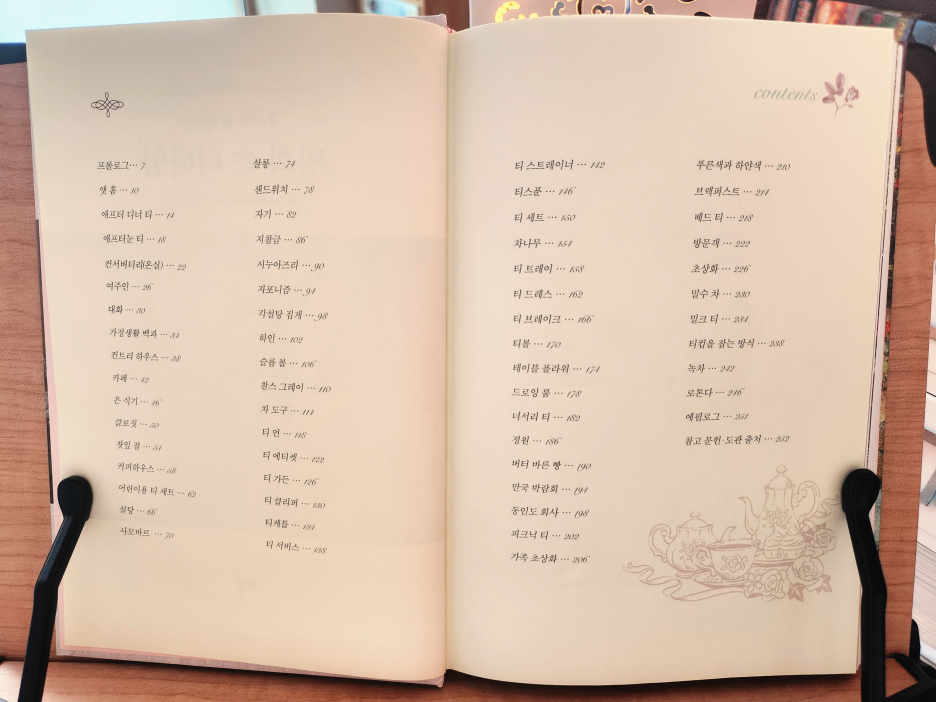 프롤로그 ··· 7
앳 홈 ··· 10
애프터 디너 티 ··· 14
애프터눈 티 ··· 18
컨서버터리(온실) ··· 22
여주인 ··· 26
대화 ··· 30
가정생활 백과 ··· 34
컨트리 하우스 ··· 38
카페 ··· 42
은 식기 ··· 46
클로짓 ··· 50
찻잎 점 ··· 54
커피하우스 ··· 58
어린이용 티 세트 ··· 62
설탕 ··· 66
사모바르 ··· 70
살롱 ··· 74
샌드위치 ··· 78
자기 ··· 82
지참금 ··· 86
시누아즈리 ··· 90
자포니즘 ··· 94
각설탕 집게 ··· 98
하인 ··· 102
슬롭 볼 ··· 106
찰스 그레이 ··· 110
차 도구 ··· 114
티 언 ··· 118
티 에티켓 ··· 122
티 가든 ··· 126
티 클리퍼 ··· 130
티케틀 ··· 134
티 서비스 ··· 138
contents
티 스트레이너 ··· 142
티스푼 ··· 146
티 세트 ··· 150
차나무 ··· 154
티 트레이 ··· 158
티 드레스 ··· 162
티 브레이크 ··· 166
티볼 ··· 170
테이블 플라워 ··· 174
드로잉 룸 ··· 178
너서리 티 ··· 182
정원 ··· 186
버터 바른 빵 ··· 190
만국 박람회 ··· 194
동인도 회사 ··· 198
피크닉 티 ··· 202
가족 초상화 ··· 206
푸른색과 하얀색 ··· 210
브랙퍼스트 ··· 214
베드 티 ··· 218
방문객 ··· 222
초상화 ··· 226
밀수 차 ··· 230
밀크 티 ··· 234
티컵을 잡는 방식 ··· 238
녹차 ··· 242
로톤다 ··· 246
에필로그 ··· 251
참고 문헌·도판 출처 ··· 252